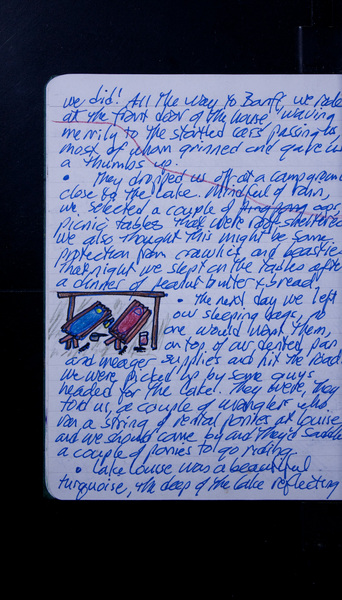 we did! All the way to Banff we rode
at the front door of the house, waving
merrily to the startled cars passing us,
most of whom grinned and gave us
a thumbs up!
• They dropped us off at a campground
close to the lake. Mindful of rain,
we selected a couple of ping pong oops,
picnic tables that were roof-sheltered.
We also thought this might be some
protection from crawlies and beasties.
That night we slept on the tables after
a dinner of peanut butter & bread.
• The next day we left
our sleeping bags, no
one would want them,
on top of our dented pan
and meager supplies and hit the road.
We were picked up by some guys
headed for the lake. They were, they
told us, a couple of wranglers who
ran a string of rental ponies at Louise
and we should come by and they'd saddle
a couple of ponies to go riding.
• Lake Louise was a beautiful
turquoise, the deep of the lake reflecting